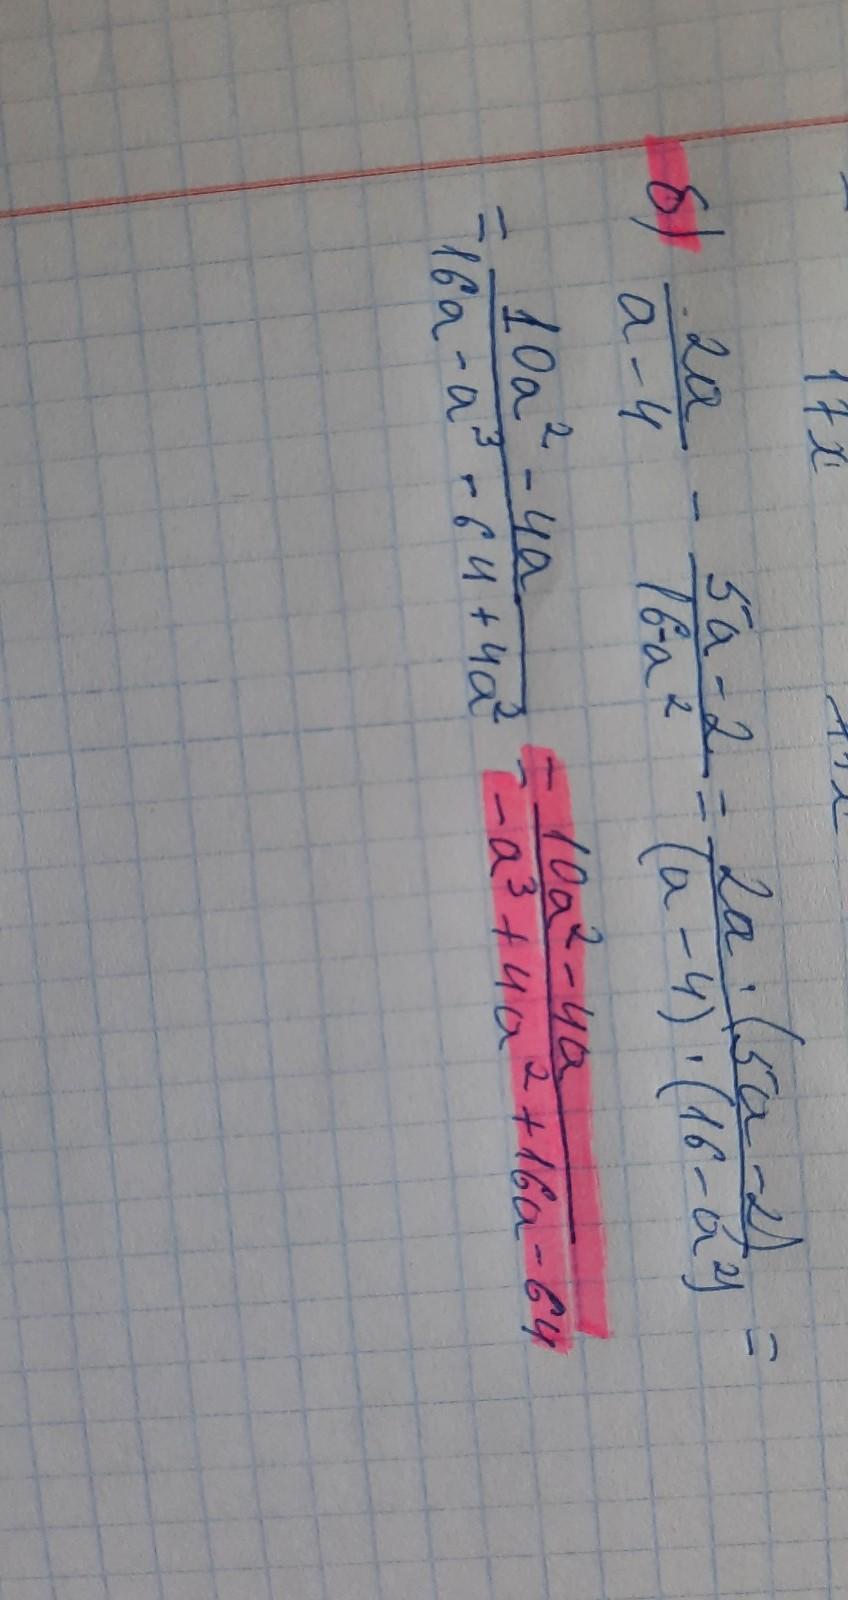 17x
б) 2a/(a-4) - (5a-2)/(16-a²) = (2a·(5a-2))/((a-4)·(16-a²)) =
= (10a²-4a)/(16a-a³-64+4a²) = (10a²-4a)/(-a³+4a²+16a-64)